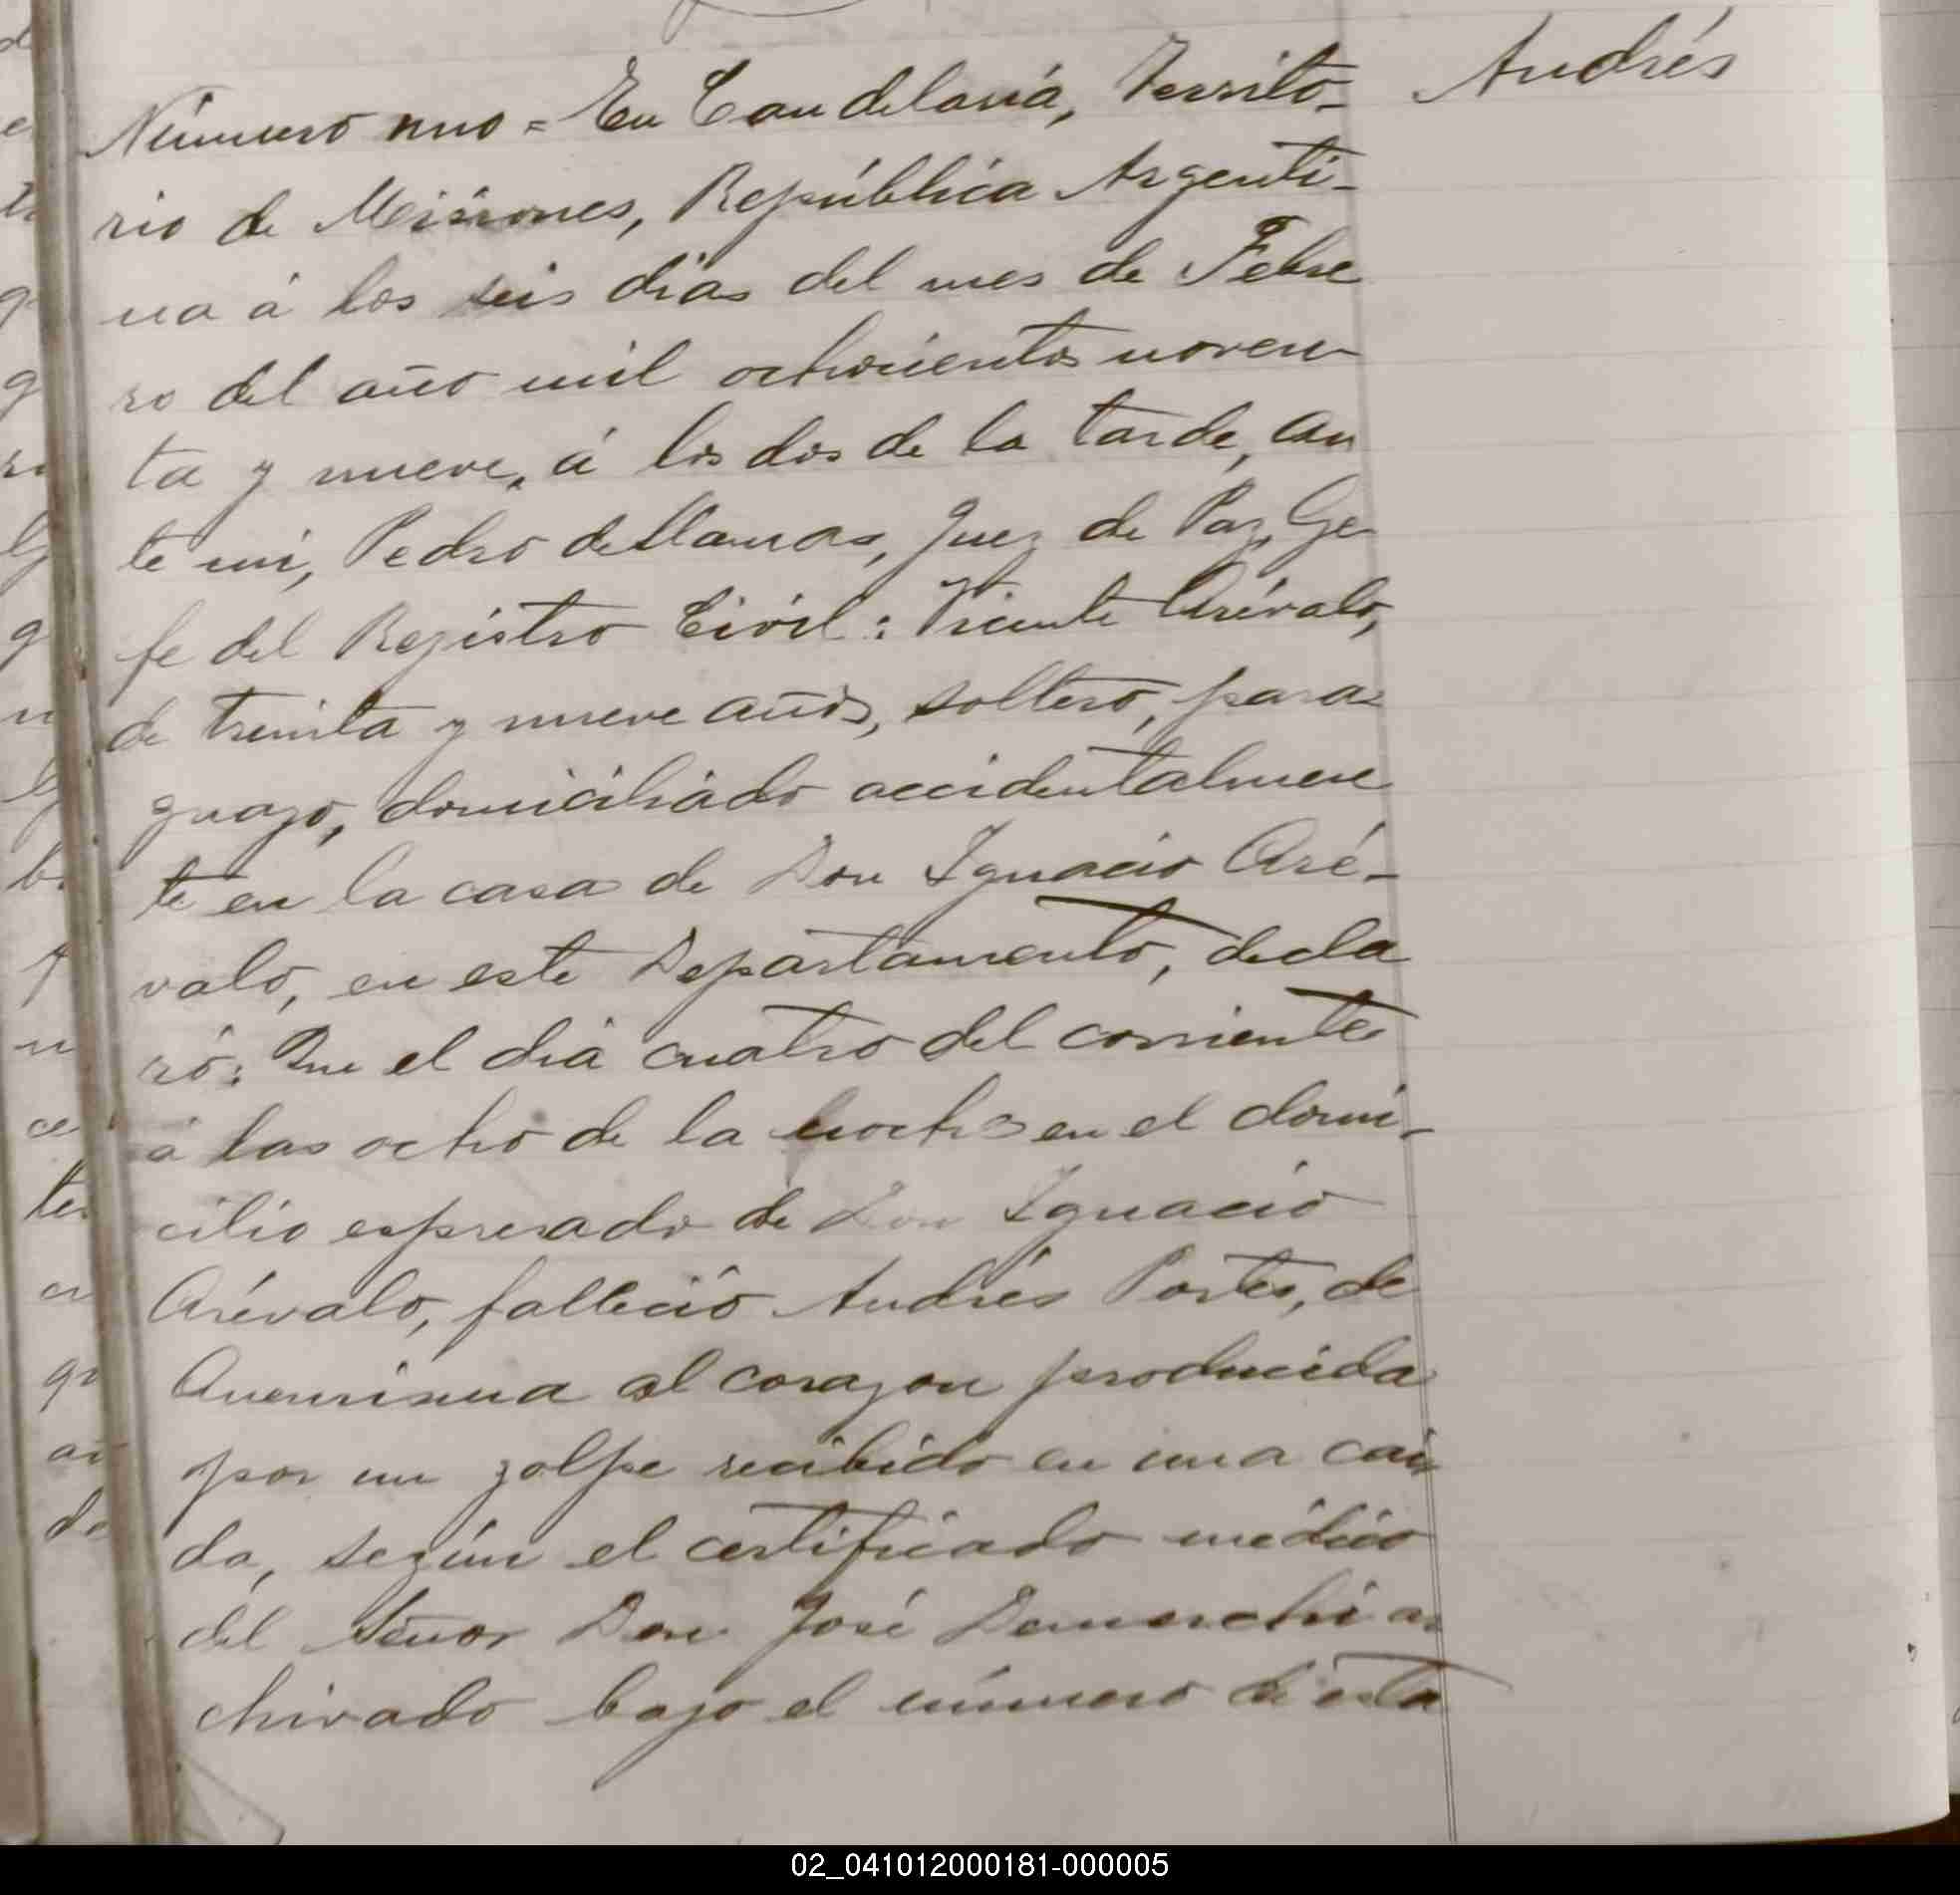 Número uno = En Candelaria, Territo- Andrés
rio de Misiones, República Argenti-
na á los seis dias del mes de Febre
ro del año mil ochocientos noven
ta y nueve, á las dos de la tarde, an
te mi, Pedro de Llamas, Juez de Paz, Ge
fe del Registro Civil: Vicente Arévalo,
de treinta y nueve años, soltero, para
guayo, domiciliado accidentalmen
te en la casa de Don Ignacio Aré-
valo, en este Departamento, decla
ró: Que el dia cuatro del corriente
á las ocho de la noche en el domi-
cilio espresado de Don Ignacio
Arévalo, falleció Andrés Portes, de
Aneurisma al corazon producida
por un golpe recibido en una cai
da, según el certificado médico
del Señor Don José ar
chivado bajo el número de esta
02_041012000181-000005